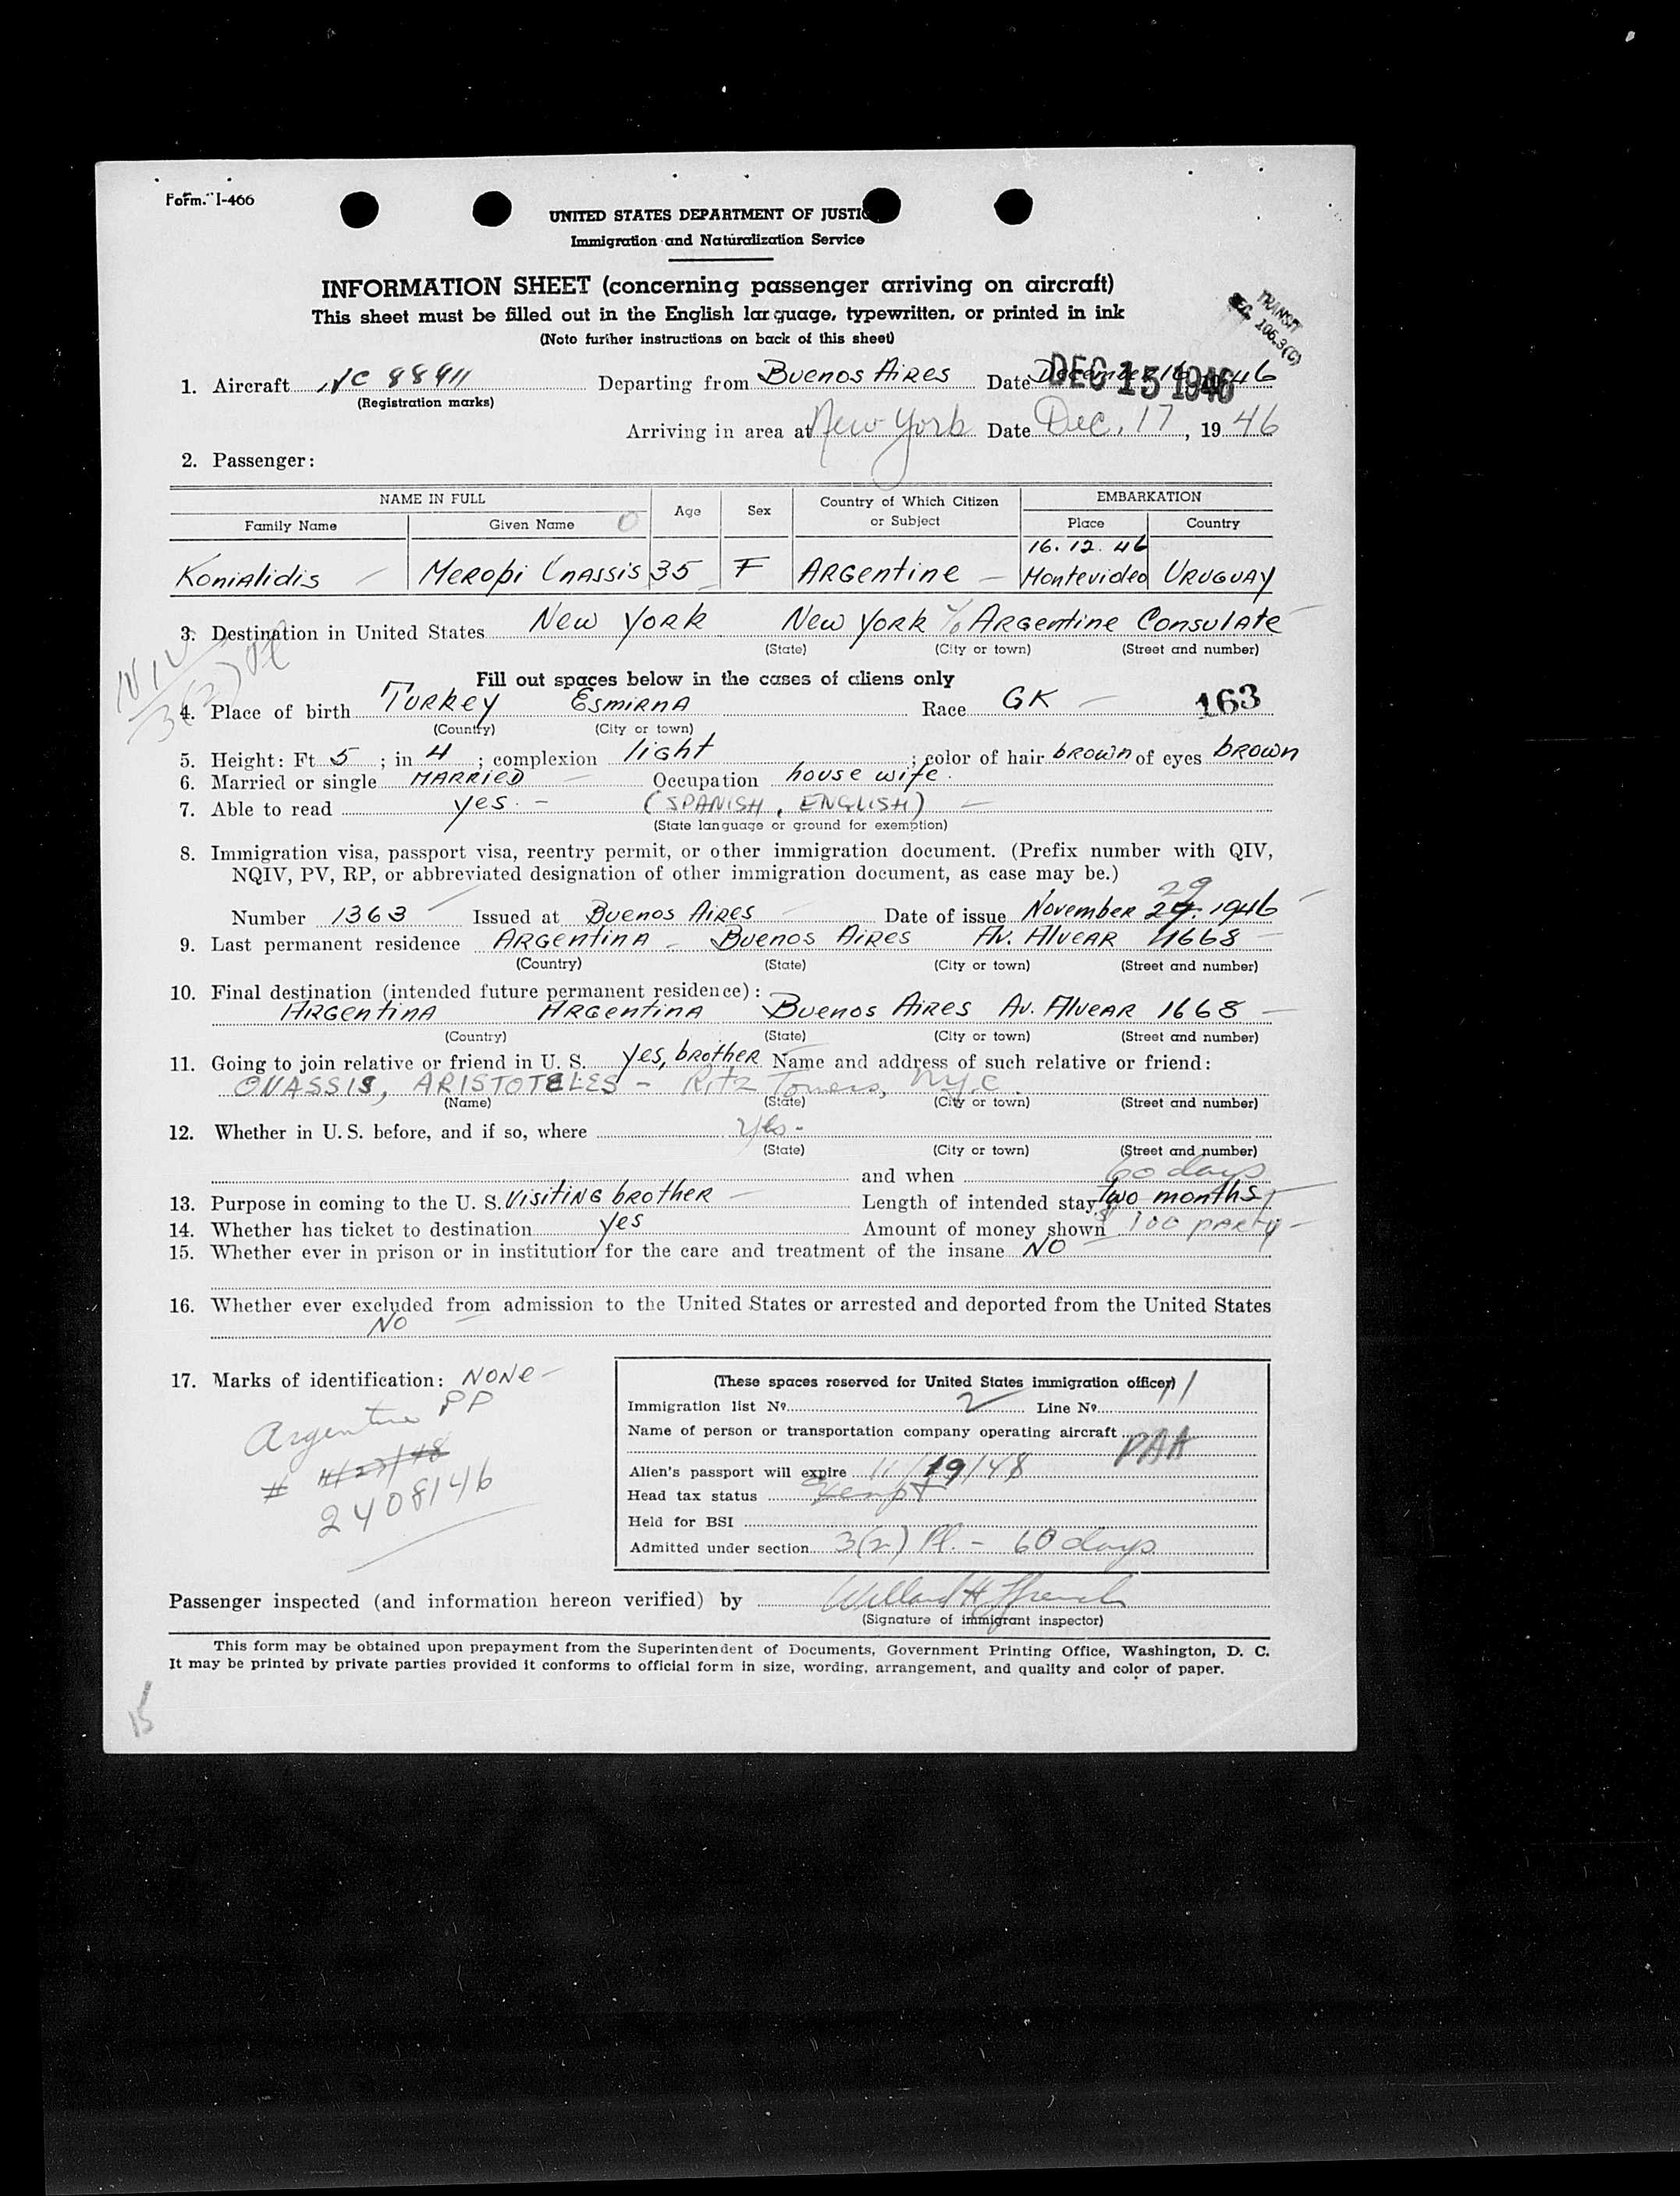 Form. I-466
UNITED STATES DEPARTMENT OF JUSTIC
Immigration and Naturalization Service
INFORMATION SHEET (concerning passenger arriving on aircraft)
This sheet must be filled out in the English language, typewritten, or printed in ink
(Note further instructions on back of this sheet)
TRANSIT
SEC. 106.3(C)
1. Aircraft NC 88911 Departing from Buenos Aires Date December 16, 1946
DEC 15 1946
(Registration marks)
Arriving in area at New York Date Dec. 17, 1946
2. Passenger:
NAME IN FULL Age Sex Country of Which Citizen or Subject EMBARKATION
Family Name Given Name O Place Country
16. 12. 46
Konialidis Meropi Onassis 35 F Argentine Montevideo Uruguay
3. Destination in United States New York New York c/o Argentine Consulate
(State) (City or town) (Street and number)
NIV
3(2) Pl
Fill out spaces below in the cases of aliens only
4. Place of birth Turkey Esmirna Race GK 163
(Country) (City or town)
5. Height: Ft. 5; in 4; complexion light; color of hair brown of eyes brown
6. Married or single MARRIED Occupation house wife.
7. Able to read yes. - (SPANISH, ENGLISH)
(State language or ground for exemption)
8. Immigration visa, passport visa, reentry permit, or other immigration document. (Prefix number with QIV,
NQIV, PV, RP, or abbreviated designation of other immigration document, as case may be.)
29
Number 1363 Issued at Buenos Aires Date of issue November 27. 1946
9. Last permanent residence Argentina - Buenos Aires Av. Alvear 1668
(Country) (State) (City or town) (Street and number)
10. Final destination (intended future permanent residence):
Argentina Argentina Buenos Aires Av. Alvear 1668
(Country) (State) (City or town) (Street and number)
11. Going to join relative or friend in U. S. yes, brother Name and address of such relative or friend:
ONASSIS, ARISTOTELES - Ritz Towers, N.Y.C.
(Name) (State) (City or town) (Street and number)
12. Whether in U. S. before, and if so, where yes -
(State) (City or town) (Street and number)
and when
60 days
13. Purpose in coming to the U. S. Visiting brother Length of intended stay two months
14. Whether has ticket to destination yes Amount of money shown $100 party
15. Whether ever in prison or in institution for the care and treatment of the insane NO
16. Whether ever excluded from admission to the United States or arrested and deported from the United States
NO
17. Marks of identification: NONE -
Argentine PP
# 11/23/48
2408146
(These spaces reserved for United States immigration officer)
Immigration list No. 2 Line No. 11
Name of person or transportation company operating aircraft PAA
Alien's passport will expire 11/19/48
Head tax status Exempt
Held for BSI
Admitted under section 3(2) Pl. - 60 days
Passenger inspected (and information hereon verified) by Willard H French
(Signature of immigrant inspector)
This form may be obtained upon prepayment from the Superintendent of Documents, Government Printing Office, Washington, D. C.
It may be printed by private parties provided it conforms to official form in size, wording, arrangement, and quality and color of paper.
15